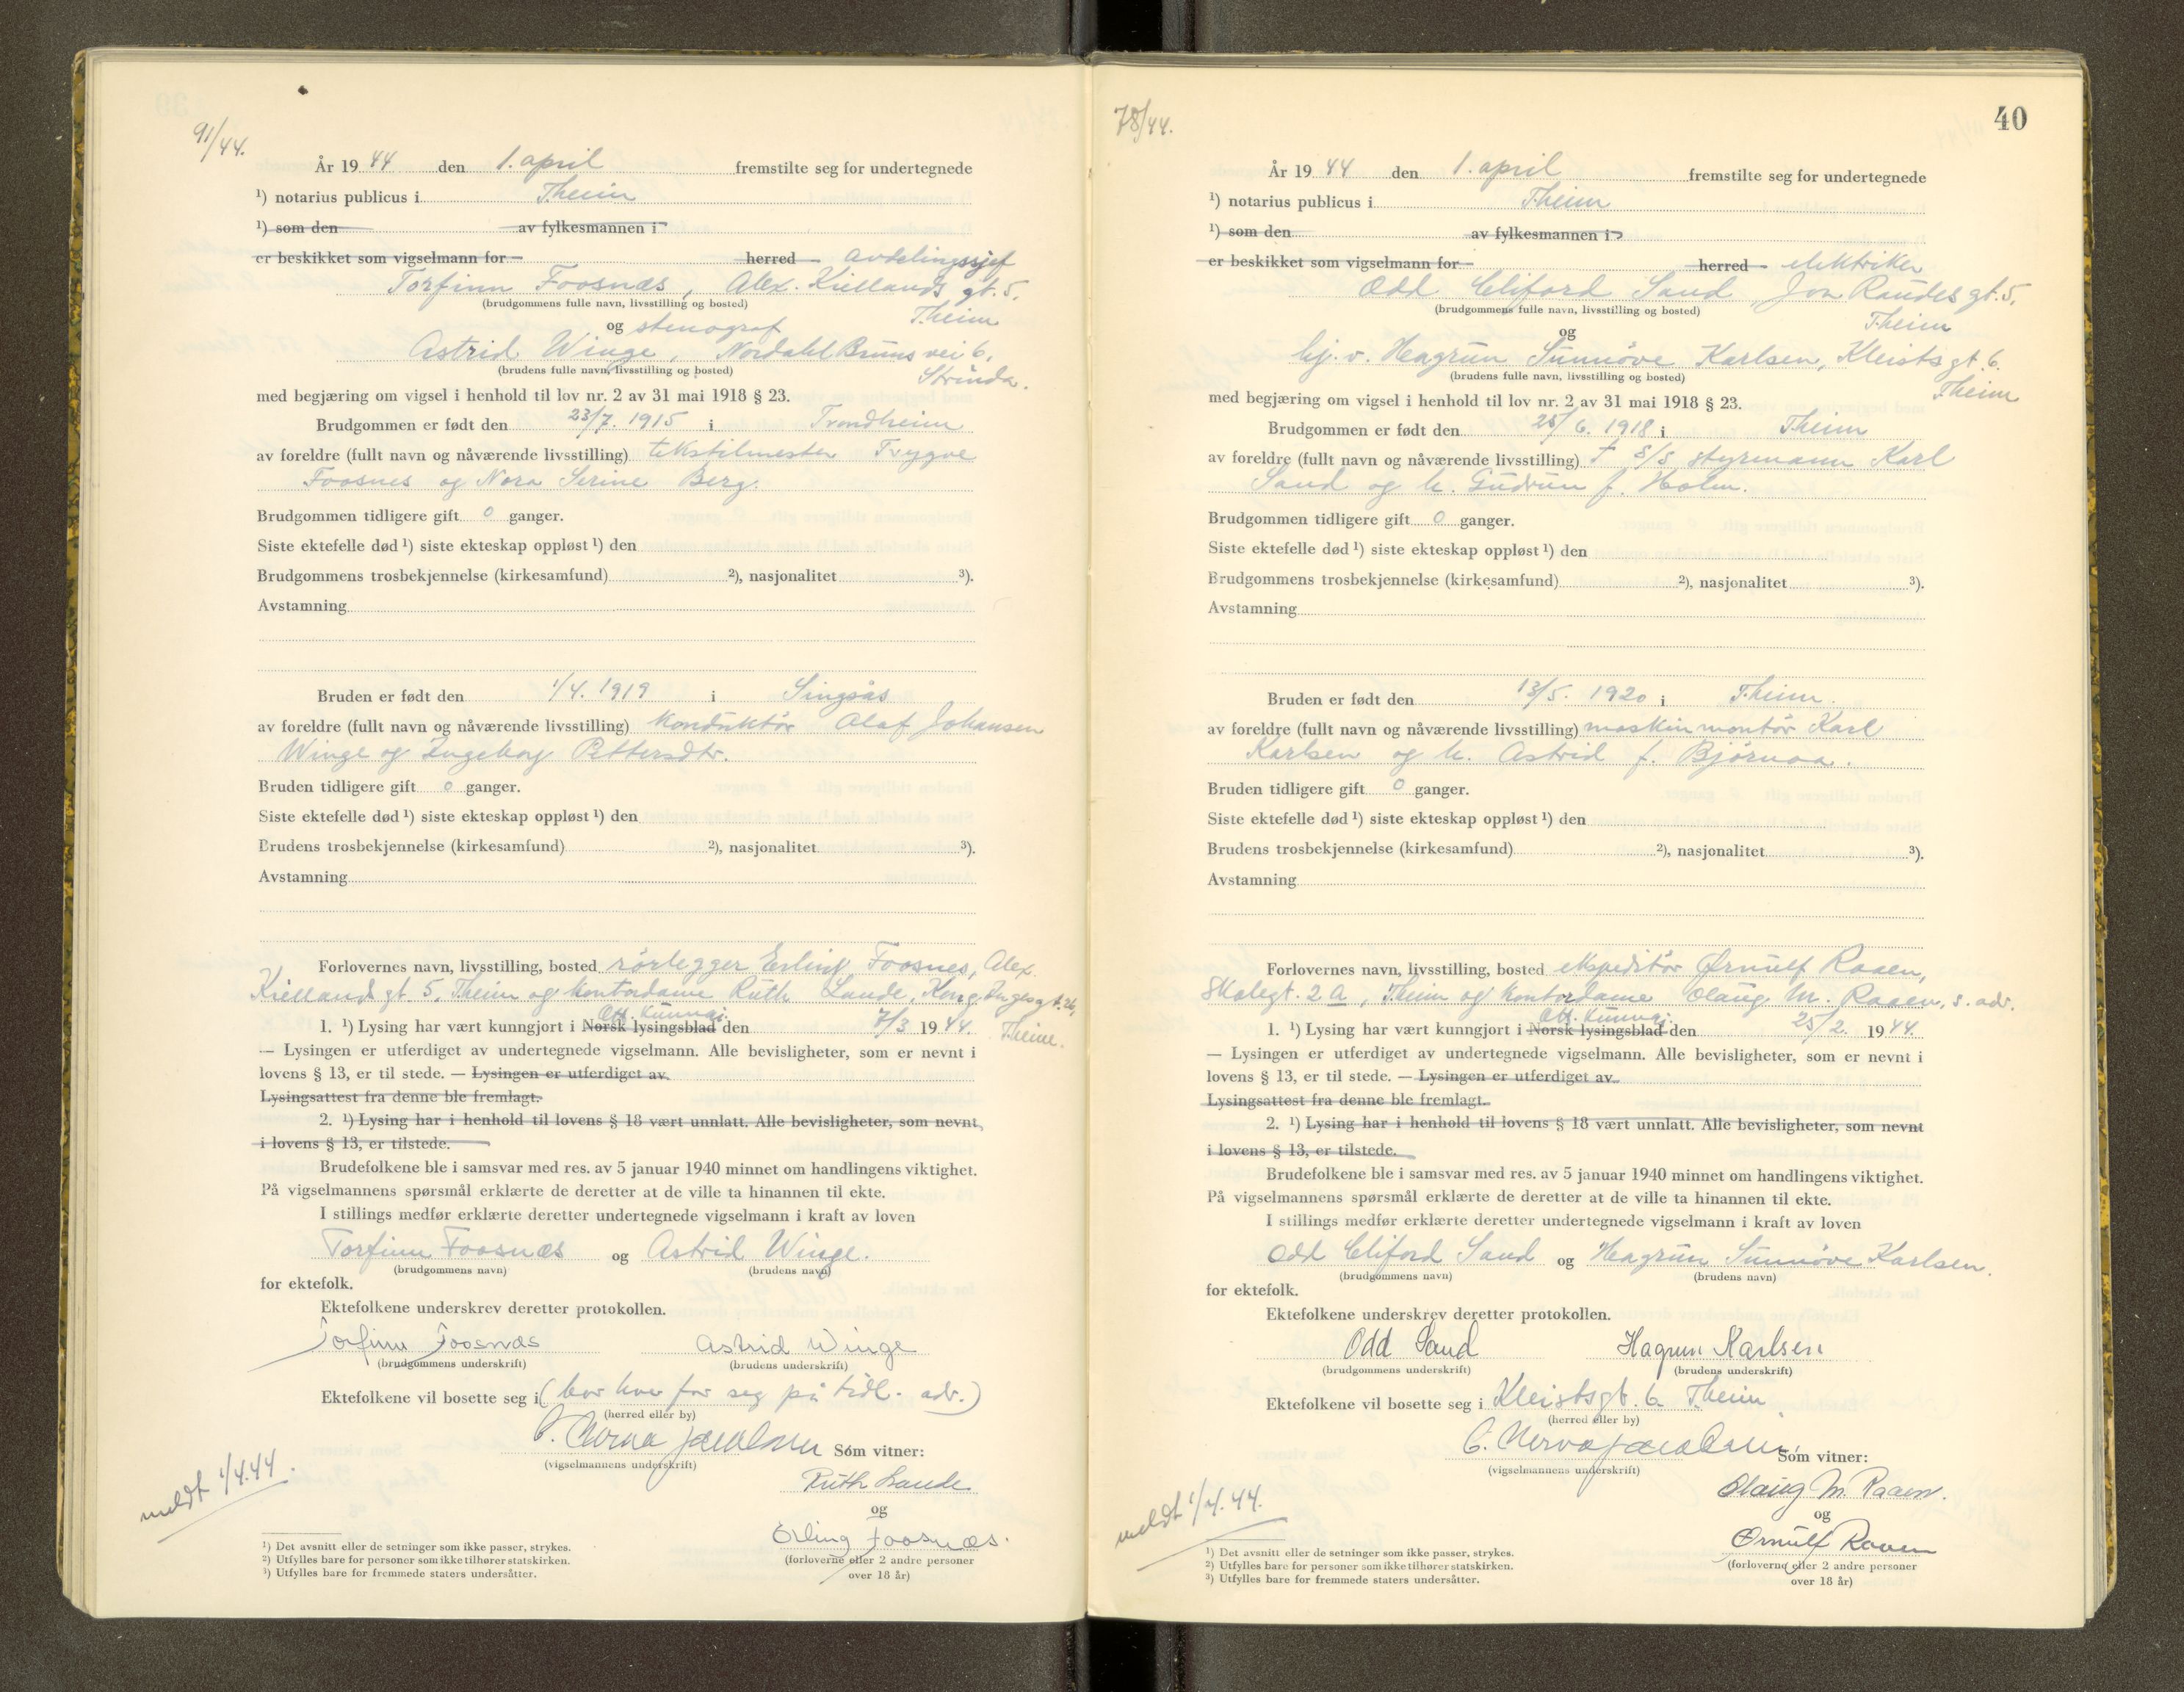 91/44.
År 1944 den 1. april fremstilte seg for undertegnede
¹) notarius publicus i T.heim
¹) som den av fylkesmannen i
er beskikket som vigselmann for herred avdelingssjef
Torfinn Foosnæs, Alex. Kiellands gt. 5.
(brudgommens fulle navn, livsstilling og bosted)
T.heim
og stenograf
Astrid Winge, Nordahl Bruns vei 6.
(brudens fulle navn, livsstilling og bosted)
Strinda.
med begjæring om vigsel i henhold til lov nr. 2 av 31 mai 1918 § 23.
Brudgommen er født den 23/7. 1915 i Trondheim
av foreldre (fullt navn og nåværende livsstilling) tekstilmester Trygve
Foosnes og Nora Serine Berg.
Brudgommen tidligere gift 0 ganger.
Siste ektefelle død ¹) siste ekteskap oppløst ¹) den
Brudgommens trosbekjennelse (kirkesamfund) ²), nasjonalitet ³).
Avstamning
Bruden er født den 1/4. 1919 i Singsås
av foreldre (fullt navn og nåværende livsstilling) konduktör Olaf Johansen
Winge og Ingeborg Pettersdtr.
Bruden tidligere gift 0 ganger.
Siste ektefelle død ¹) siste ekteskap oppløst ¹) den
Brudens trosbekjennelse (kirkesamfund) ²), nasjonalitet ³).
Avstamning
Forlovernes navn, livsstilling, bosted rörlegger Erling Foosnes, Alex.
Kiellands gt. 5, T.heim og kontordame Ruth Lande, Kong Inges gt. 26,
Off. Kunngj.
1. ¹) Lysing har vært kunngjort i Norsk lysingsblad den 7/3 1944. T.heim.
— Lysingen er utferdiget av undertegnede vigselmann. Alle bevisligheter, som er nevnt i
lovens § 13, er til stede. — Lysingen er utferdiget av
Lysingsattest fra denne ble fremlagt.
2. ¹) Lysing har i henhold til lovens § 18 vært unnlatt. Alle bevisligheter, som nevnt
i lovens § 13, er tilstede.
Brudefolkene ble i samsvar med res. av 5 januar 1940 minnet om handlingens viktighet.
På vigselmannens spørsmål erklærte de deretter at de ville ta hinannen til ekte.
I stillings medfør erklærte deretter undertegnede vigselmann i kraft av loven
Torfinn Foosnæs og Astrid Winge.
(brudgommens navn) (brudens navn)
for ektefolk.
Ektefolkene underskrev deretter protokollen.
Torfinn Foosnæs Astrid Winge
(brudgommens underskrift) (brudens underskrift)
Ektefolkene vil bosette seg i (bor hver for seg på tidl. adr.)
(herred eller by)
C. Nerva Jacobsen Som vitner:
(vigselmannens underskrift)
meldt 1/4.44.
Ruth Lande
og
Erling Foosnæs.
(forloverne eller 2 andre personer
over 18 år)
¹) Det avsnitt eller de setninger som ikke passer, strykes.
²) Utfylles bare for personer som ikke tilhører statskirken.
³) Utfylles bare for fremmede staters undersåtter.
78/44.
40
År 1944 den 1. april fremstilte seg for undertegnede
¹) notarius publicus i T.heim
¹) som den av fylkesmannen i
er beskikket som vigselmann for herred elektriker
Odd Cliford Sand, Jon Raudes gt. 5,
(brudgommens fulle navn, livsstilling og bosted)
T.heim
og
hj. v. Heagrun Sunnöve Karlsen, Kleists gt. 6.
(brudens fulle navn, livsstilling og bosted)
T.heim
med begjæring om vigsel i henhold til lov nr. 2 av 31 mai 1918 § 23.
Brudgommen er født den 25/6. 1918 i T.heim
av foreldre (fullt navn og nåværende livsstilling) † S/S styrmann Karl
Sand og h. Gudrun f. Holm.
Brudgommen tidligere gift 0 ganger.
Siste ektefelle død ¹) siste ekteskap oppløst ¹) den
Brudgommens trosbekjennelse (kirkesamfund) ²), nasjonalitet ³).
Avstamning
Bruden er født den 13/5. 1920 i T.heim.
av foreldre (fullt navn og nåværende livsstilling) maskinmontör Karl
Karlsen og h. Astrid f. Björnaa.
Bruden tidligere gift 0 ganger.
Siste ektefelle død ¹) siste ekteskap oppløst ¹) den
Brudens trosbekjennelse (kirkesamfund) ²), nasjonalitet ³).
Avstamning
Forlovernes navn, livsstilling, bosted ekspeditör Ørnulf Raaen,
Skolegt. 2 a, T.heim og kontordame Olaug M. Raaen, s. adr.
Off. Kunngj.
1. ¹) Lysing har vært kunngjort i Norsk lysingsblad den 25/2. 1944.
— Lysingen er utferdiget av undertegnede vigselmann. Alle bevisligheter, som er nevnt i
lovens § 13, er til stede. — Lysingen er utferdiget av
Lysingsattest fra denne ble fremlagt.
2. ¹) Lysing har i henhold til lovens § 18 vært unnlatt. Alle bevisligheter, som nevnt
i lovens § 13, er tilstede.
Brudefolkene ble i samsvar med res. av 5 januar 1940 minnet om handlingens viktighet.
På vigselmannens spørsmål erklærte de deretter at de ville ta hinannen til ekte.
I stillings medfør erklærte deretter undertegnede vigselmann i kraft av loven
Odd Cliford Sand og Heagrun Sunnöve Karlsen.
(brudgommens navn) (brudens navn)
for ektefolk.
Ektefolkene underskrev deretter protokollen.
Odd Sand Hagrun Karlsen
(brudgommens underskrift) (brudens underskrift)
Ektefolkene vil bosette seg i Kleistsgt. 6. T.heim
(herred eller by)
C. Nerva Jacobsen Som vitner:
(vigselmannens underskrift)
meldt 1/4. 44.
Olaug M. Raaen.
og
Ørnulf Raaen
(forloverne eller 2 andre personer
over 18 år)
¹) Det avsnitt eller de setninger som ikke passer, strykes.
²) Utfylles bare for personer som ikke tilhører statskirken.
³) Utfylles bare for fremmede staters undersåtter.